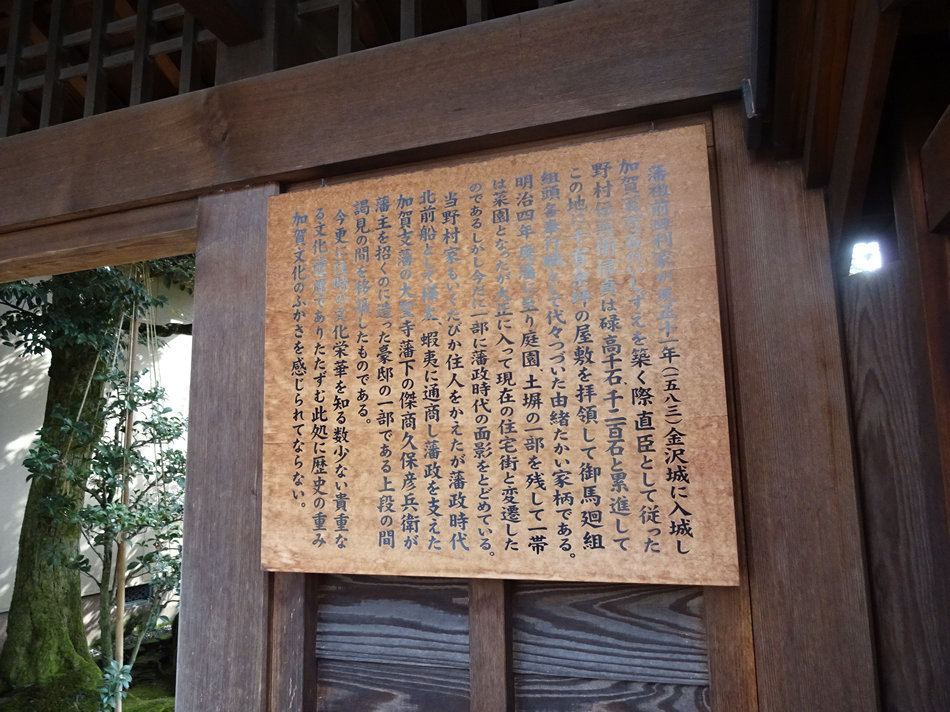 藩祖前田利家が天正十一年(一五八三)金沢城に入城し
加賀百万石のいしずえを築く際直臣として従った
野村伝兵衛信貞は碌高千石、千二百石と累進して
この地に千有余坪の屋敷を拝領して御馬廻組
組頭各奉行職として代々つづいた由緒たかい家柄である。
明治四年 廃藩に至り庭園、土塀の一部を残して一帯
は菜園となったが大正に入って現在の住宅街と変遷した
のであるしかし今だに一部に藩政時代の面影をとどめている。
当野村家もいくたびか住人をかえたが藩政時代
北前船として樺太、蝦夷に通商し藩政を支えた
加賀支藩の大聖寺藩下の傑商久保彦兵衛が
藩主を招くのに造った豪邸の一部である上段の間
謁見の間を移築したものである。
今更に往時の文化栄華を知る数少ない貴重な
る文化遺産でありたたずむ此処に歴史の重み
加賀文化のふかさを感じられてならない。